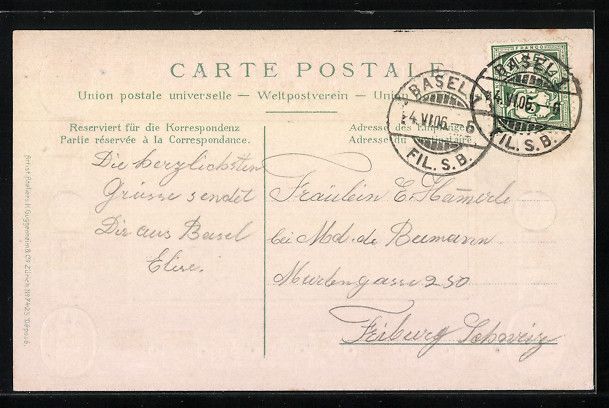 CARTE POSTALE
Union postale universelle – Weltpostverein – Uni
Reserviert für die Korrespondenz
Partie réservée à la Correspondance.
Adresse des Empfängers
Adresse du
FRANCO
BASEL
4.VI.06. – 6
FIL.S.B.
BASEL
4.VI.06. – 6
FIL.S.B.
Die herzlichsten
Grüsse sendet
Dir aus Basel
Elise.
Fräulein E. Hämerle
bei Md. de Bumann
Murtengasse 250
Friburg Schweiz